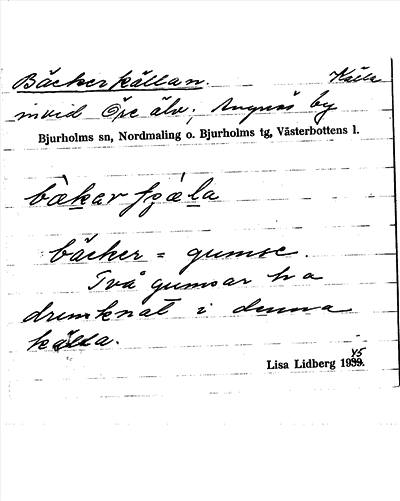 Bäckerkällan. Källa
invid Öre älv; Ängnäs by
Bjurholms sn, Nordmaling o. Bjurholms tg, Västerbottens l.
bäcker = gumse.
Två gumsar ha
drunknat i denna
källa.
Lisa Lidberg 1939. 45